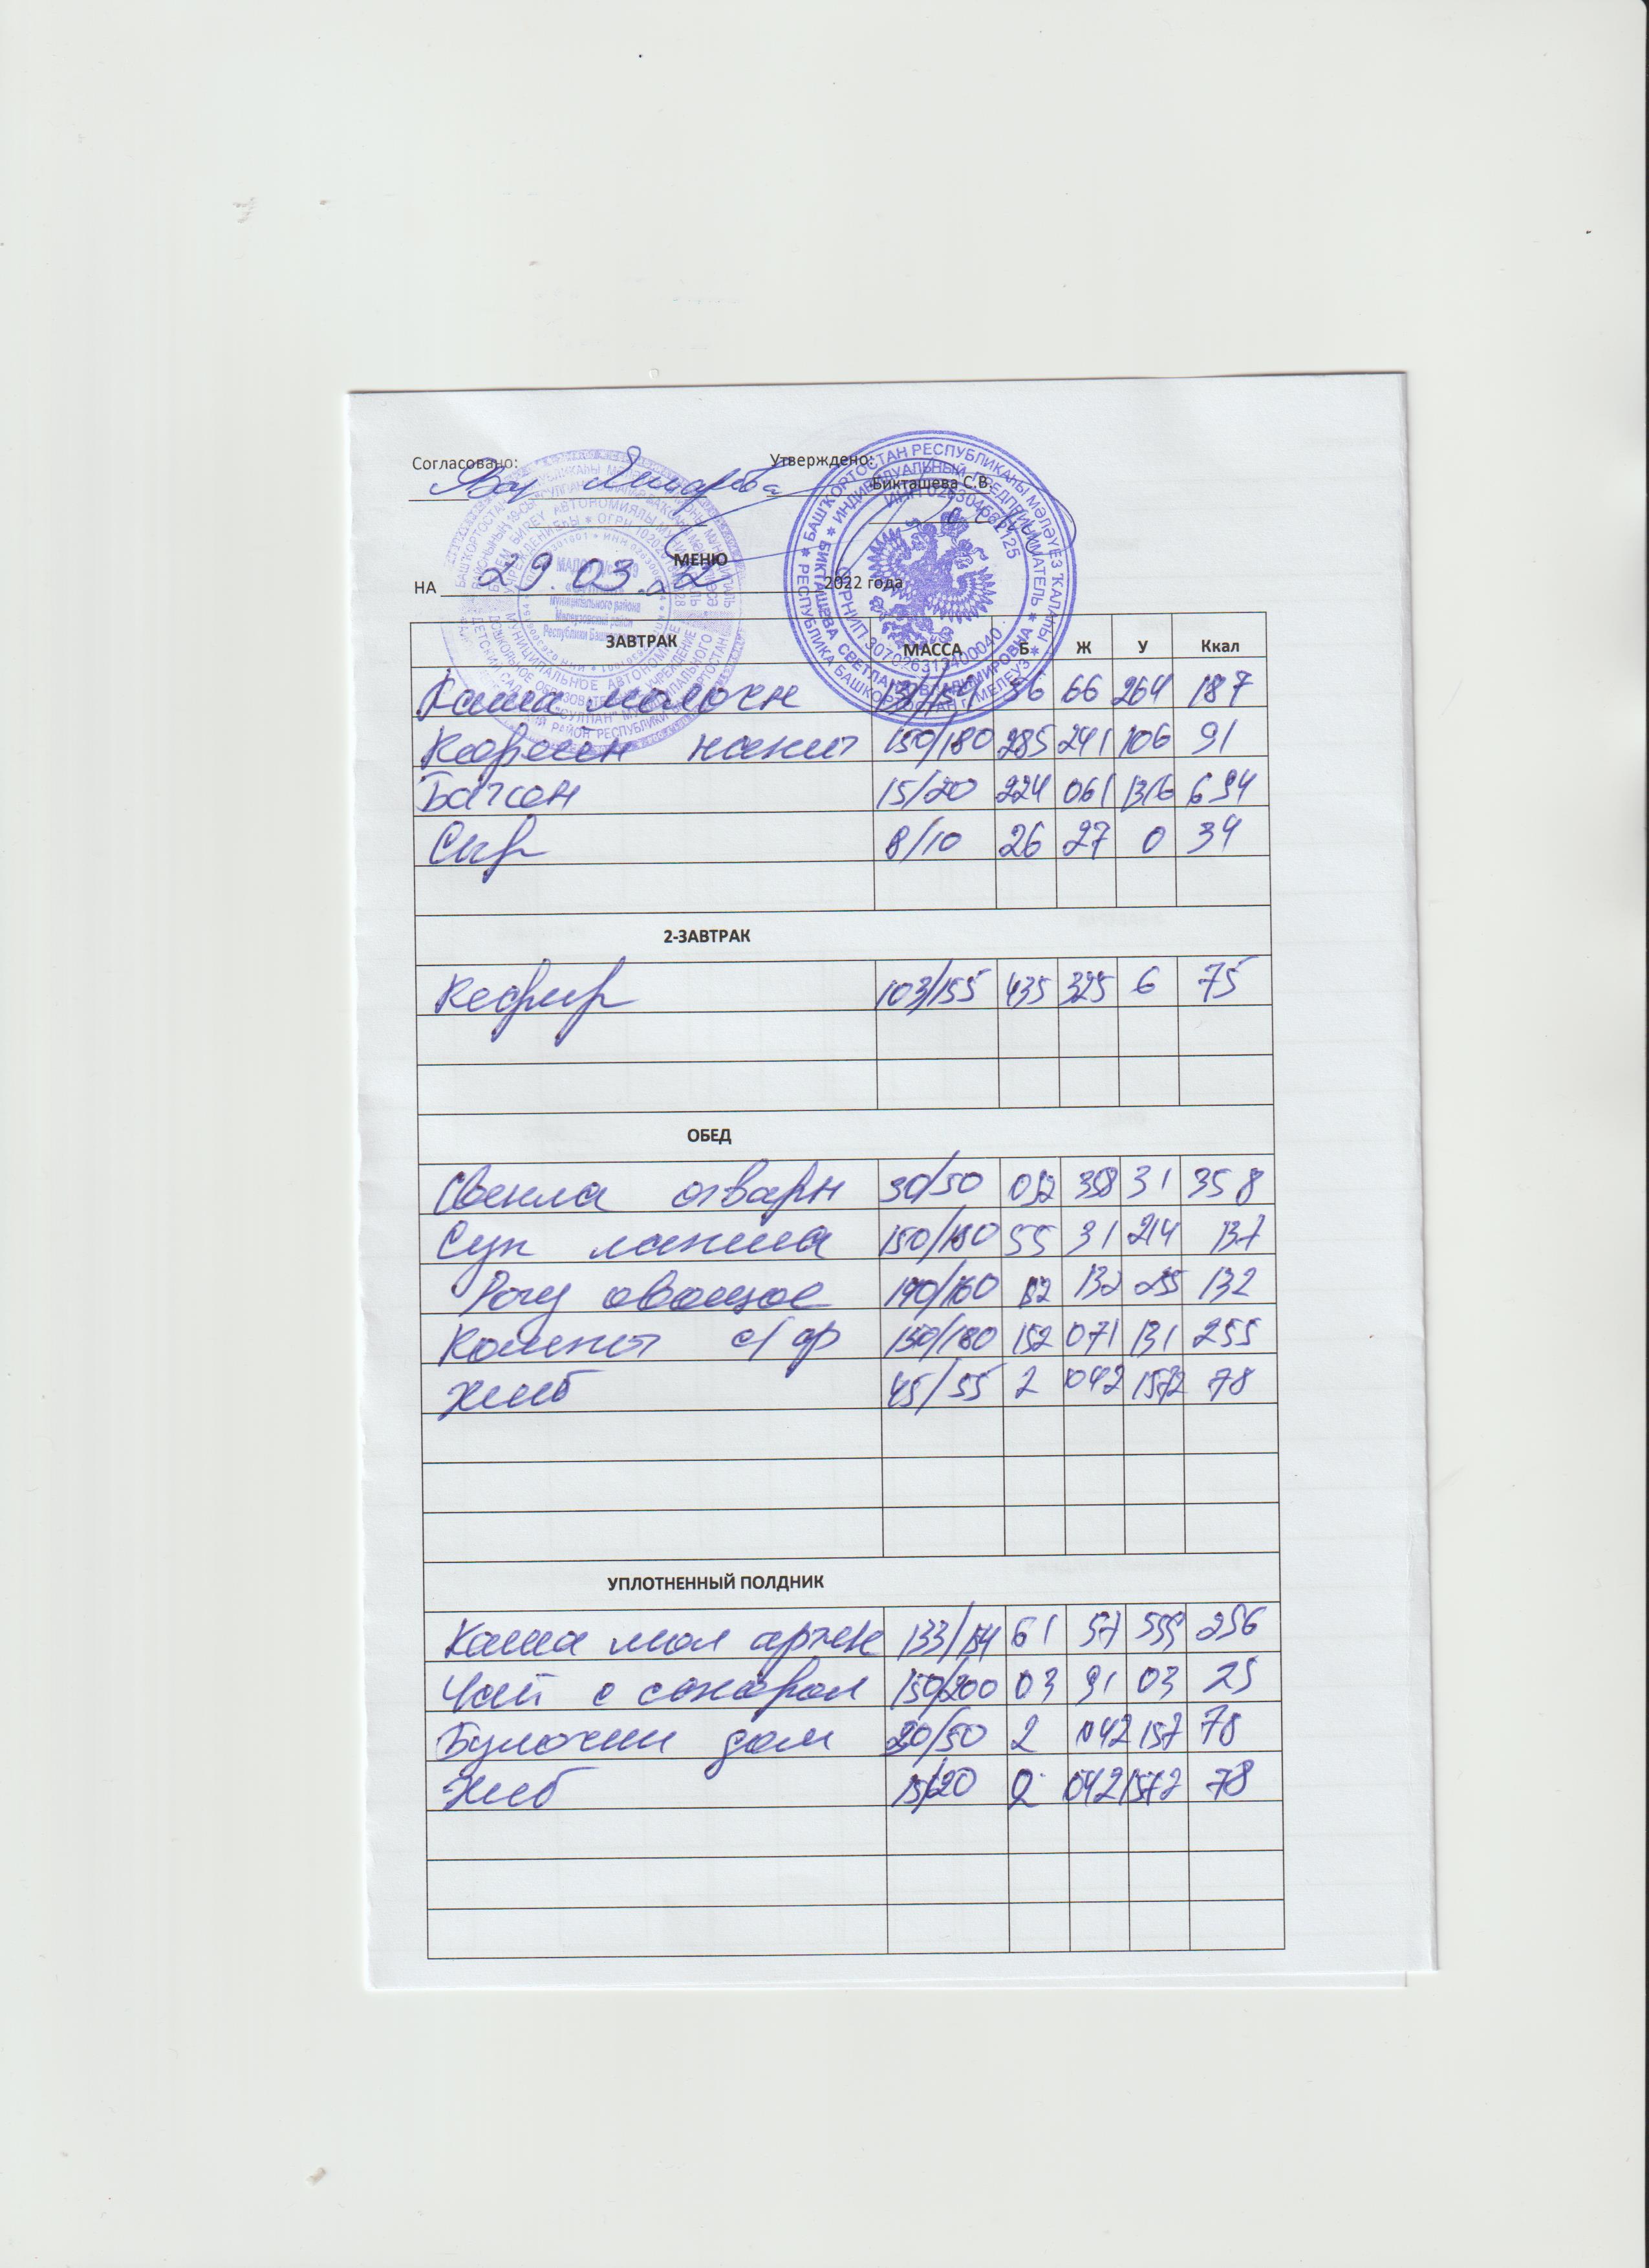 Согласовано: Утверждено:
Бикташева С.В.
МЕНЮ
НА 29.03. 2022 года
ЗАВТРАК МАССА Б Ж У Ккал
Каша молочн 56 66 264 187
Кофейн напит 150/180 285 241 106 91
Батон 15/20 224 061 1316 694
Сыр 8/10 26 27 0 34
2-ЗАВТРАК
Кефир 103/155 435 325 6 75
ОБЕД
Свекла отварн 30/50 052 358 31 358
Суп лапша 150/180 55 31 214 137
Рагу овощное 140/160 132 255 132
Компот с/ф 150/180 152 071 131 255
Хлеб 45/55 2 042 1572 78
УПЛОТНЕННЫЙ ПОЛДНИК
Каша мол 133/154 61 57 256
Чай с сахаром 150/200 03 91 03 25
Булочки дом 50 2 042 157 78
Хлеб 15/20 2 042 1572 78
БАШҠОРТОСТАН РЕСПУБЛИКАҺЫ МӘЛӘҮЕЗ ҠАЛАҺЫ * РЕСПУБЛИКА БАШКОРТОСТАН Г. МЕЛЕУЗ *
ИНДИВИДУАЛЬНЫЙ ПРЕДПРИНИМАТЕЛЬ * БИКТАШЕВА СВЕТЛАНА ВЛАДИМИРОВНА *
муниципального района
Мелеузовский район